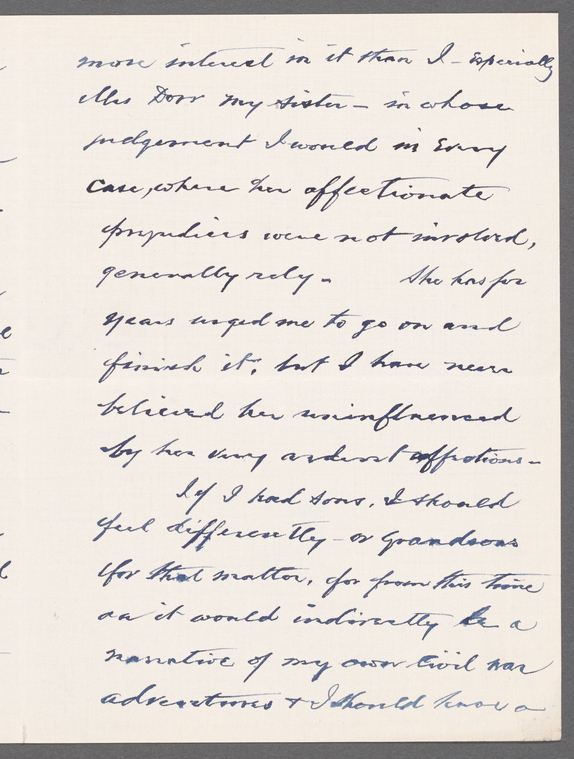 more interest in it than I - Especially
Mrs Dorr my sister - in whose
judgement I would in Every
Case, where her affectionate
prejudices were not involved,
generally rely - She has for
years urged me to go on and
finish it; but I have never
believed her uninfluenced
by her very ardent affections -
If I had sons, I should
feel differently - or Grandsons
for that matter, for from this time
on it would indirectly be a
narrative of my own Civil War
adventures & I should have a